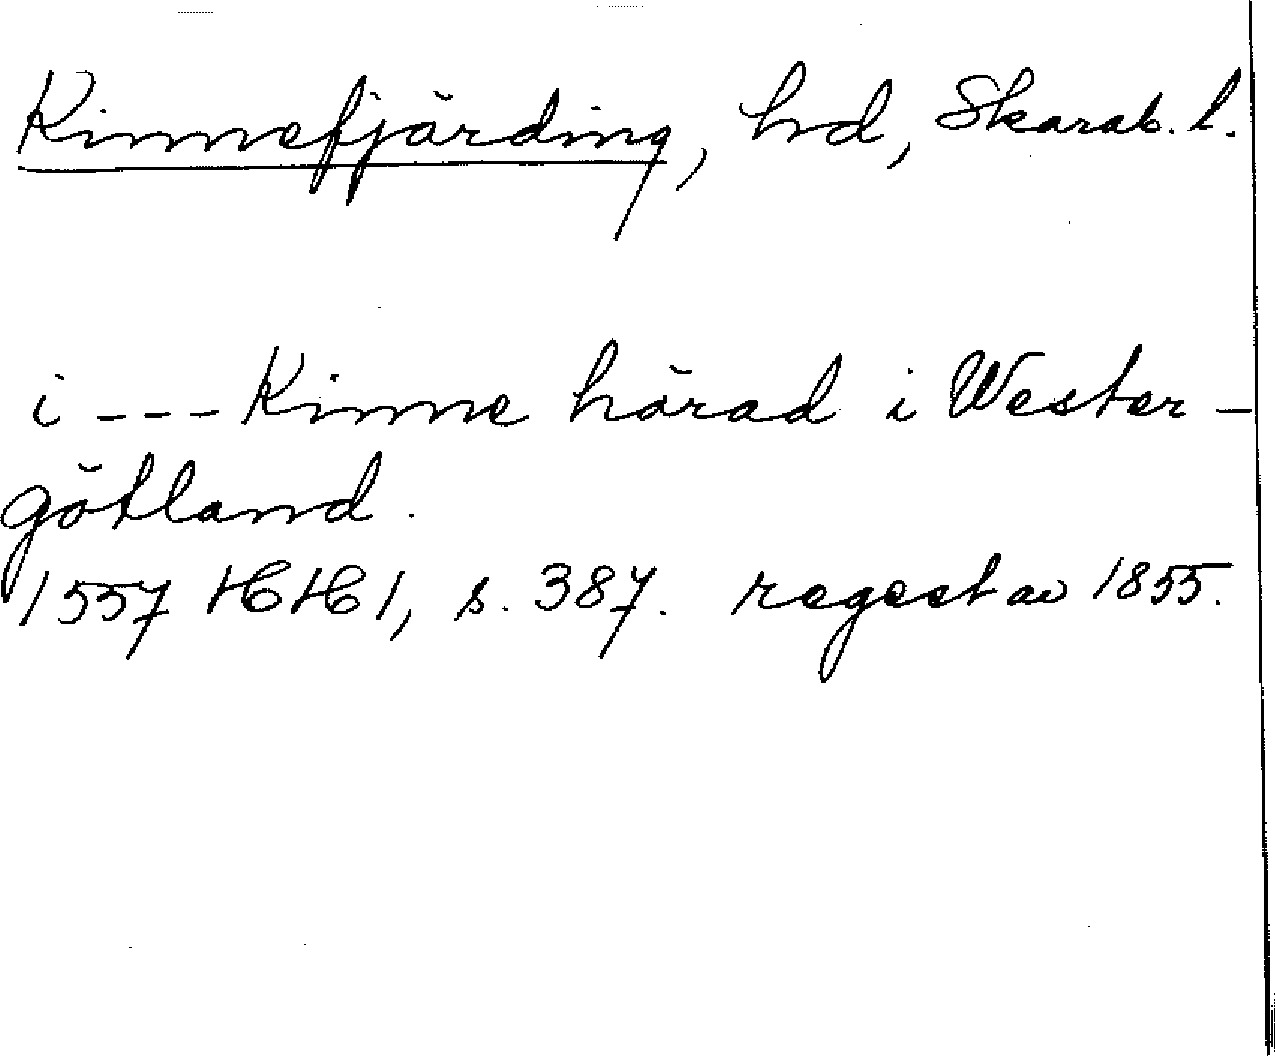 Kinnefjärding, hd, Skarab. l.
i --- Kinne härad i Wester-
götland.
1557 HH 1, s. 387. regest av 1855.